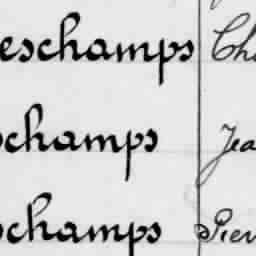 eschamps Cha
schamps Jea
schamps Pier